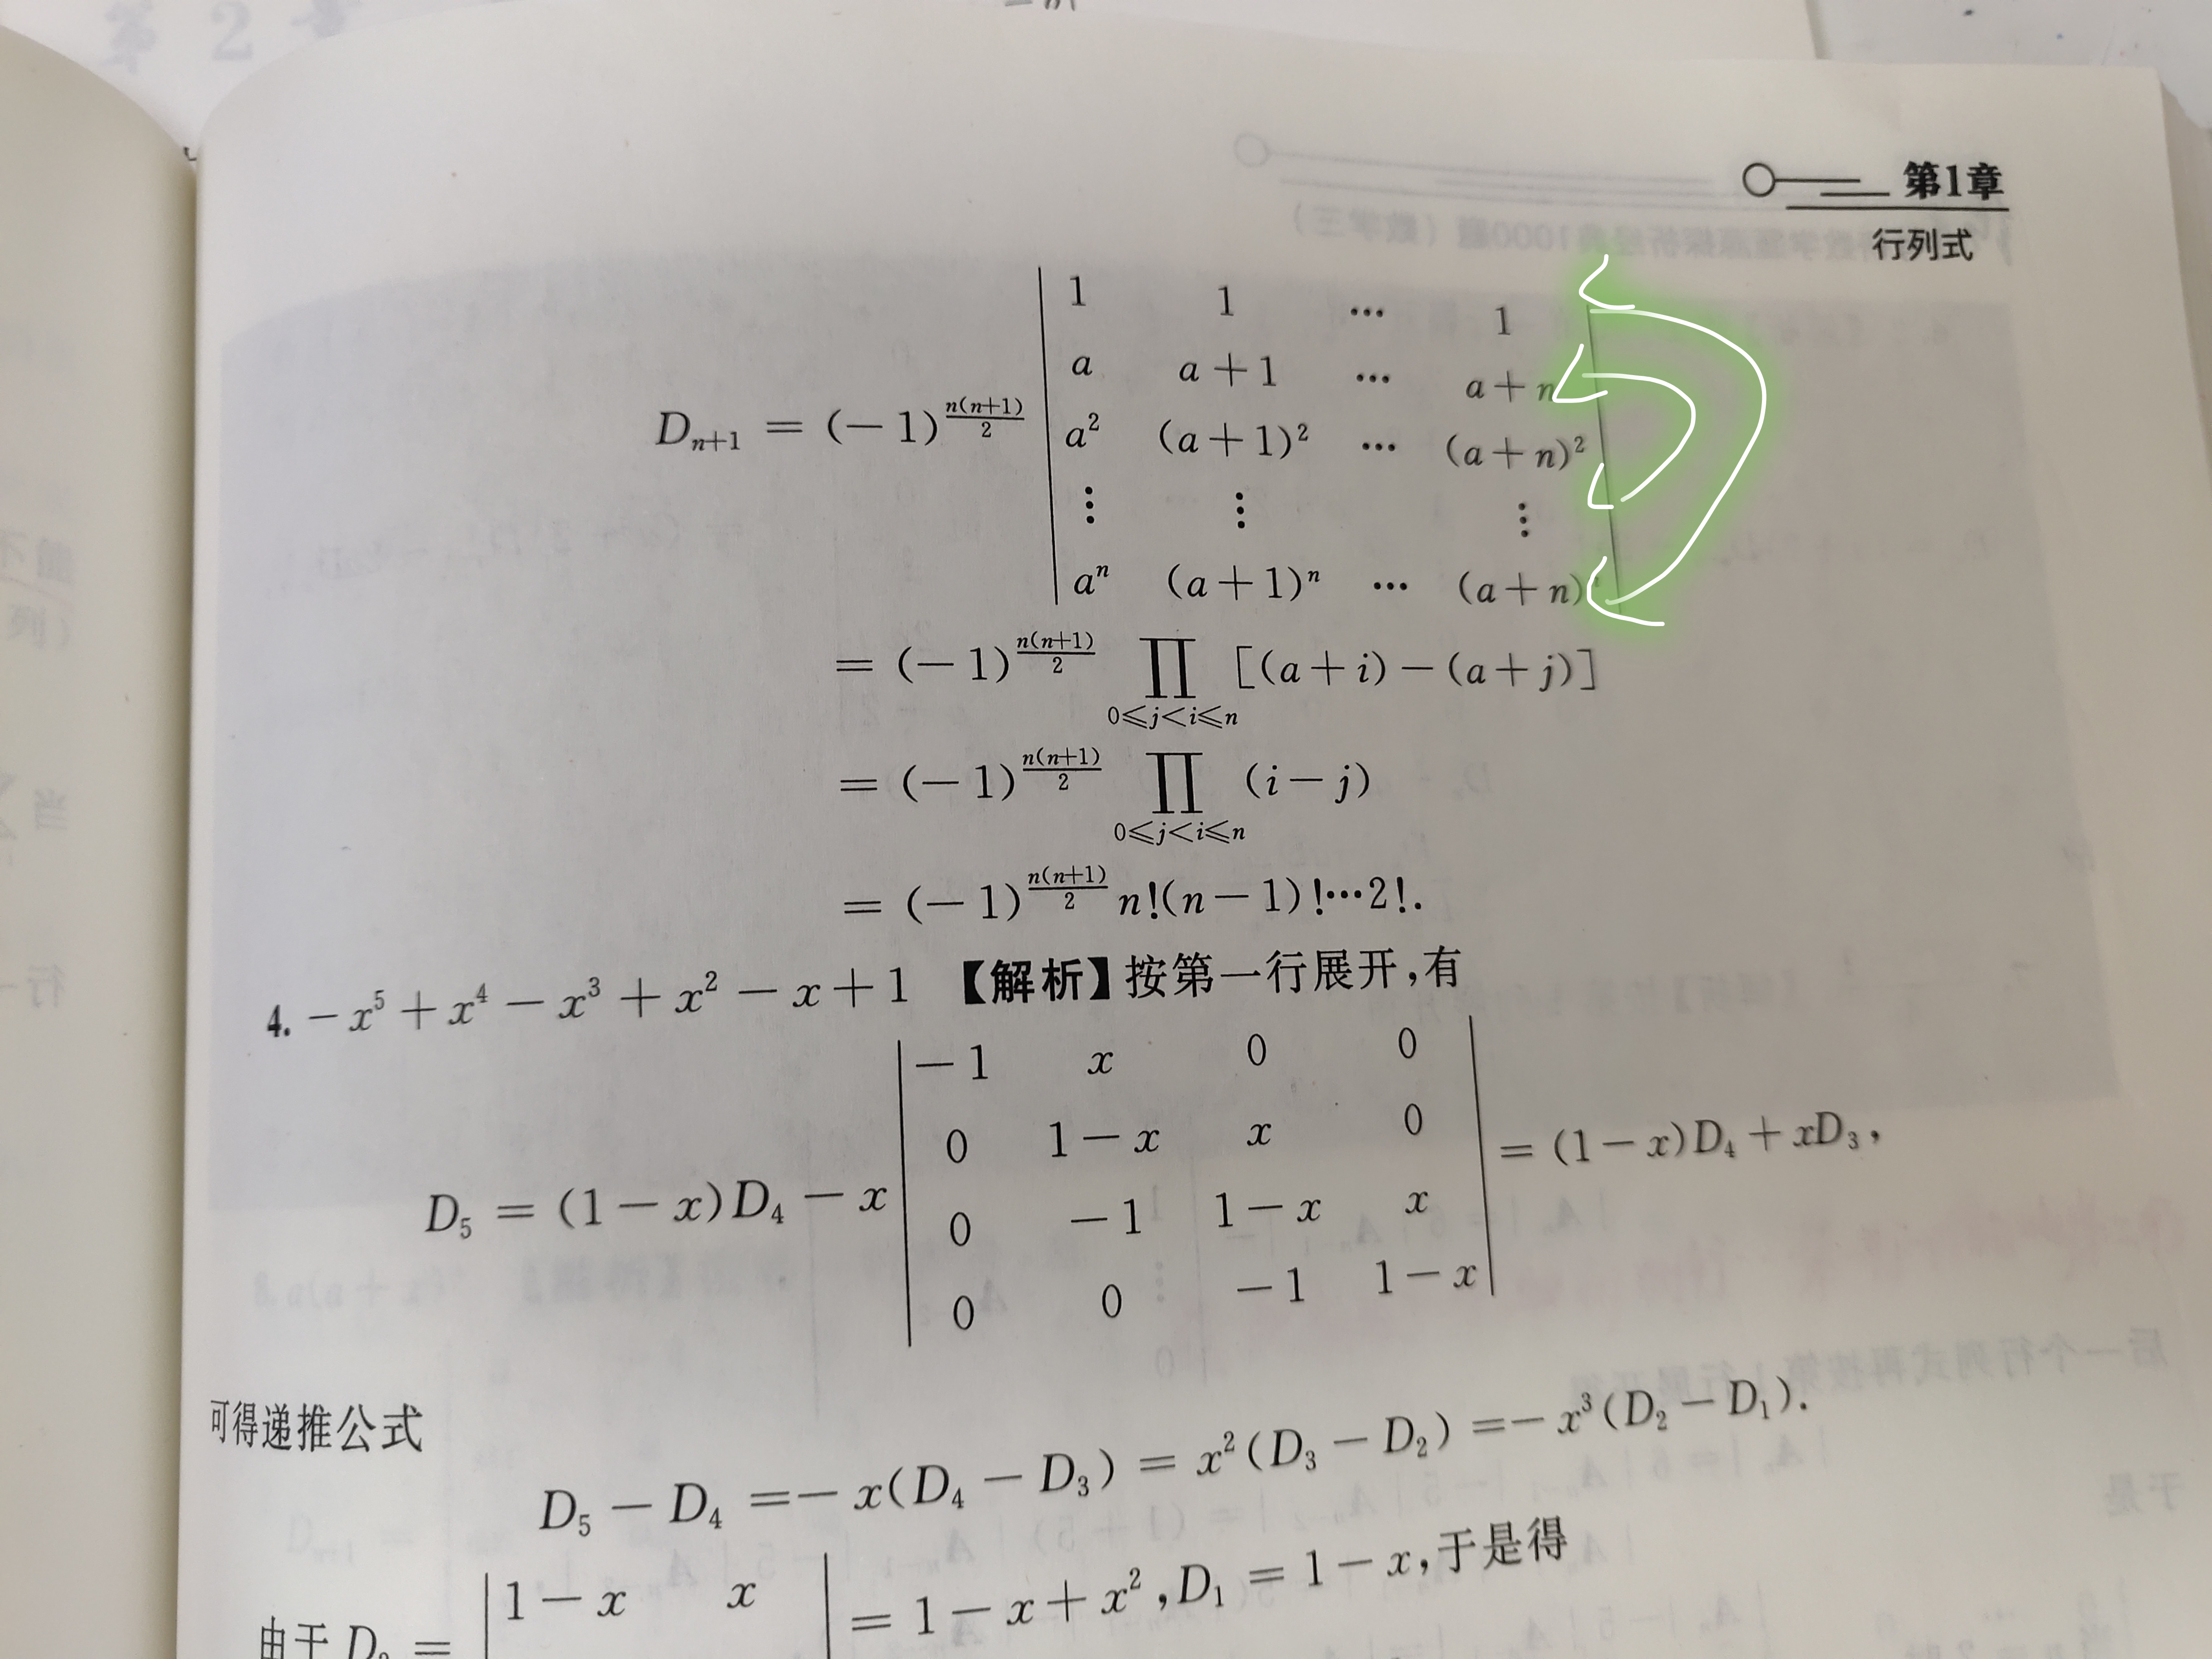 第2章
第1章
行列式
D_{n+1} = (-1)^{\frac{n(n+1)}{2}} \begin{vmatrix} 1 & 1 & \cdots & 1 \\ a & a+1 & \cdots & a+n \\ a^2 & (a+1)^2 & \cdots & (a+n)^2 \\ \vdots & \vdots & & \vdots \\ a^n & (a+1)^n & \cdots & (a+n) \end{vmatrix}
= (-1)^{\frac{n(n+1)}{2}} \prod_{0≤j<i≤n} [(a+i)-(a+j)]
= (-1)^{\frac{n(n+1)}{2}} \prod_{0≤j<i≤n} (i-j)
= (-1)^{\frac{n(n+1)}{2}} n!(n-1)!⋯2!.
4. -x^5+x^4-x^3+x^2-x+1 【解析】按第一行展开,有
D_5 = (1-x)D_4 - x \begin{vmatrix} -1 & x & 0 & 0 \\ 0 & 1-x & x & 0 \\ 0 & -1 & 1-x & x \\ 0 & 0 & -1 & 1-x \end{vmatrix} = (1-x)D_4 + xD_3,
可得递推公式
D_5 - D_4 = -x(D_4 - D_3) = x^2(D_3 - D_2) = -x^3(D_2 - D_1).
由于 D_2 = \begin{vmatrix} 1-x & x \end{vmatrix} = 1-x+x^2, D_1 = 1-x,于是得